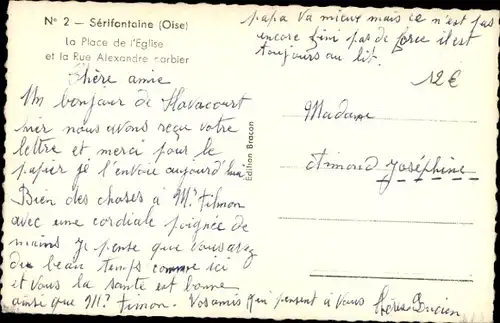 N° 2 – Sérifontaine (Oise)
La Place de l'Eglise
et la Rue Alexandre Barbier
papa va mieux mais ce n'est pas
encore fini pas de force il est
toujours au lit.
12€
Chère amie
Un bonjour de Flavacourt
hier nous avons reçu votre
lettre et merci pour le
papier je l'envoie aujourd'hui
Bien des choses à Mr Fimon
avec une cordiale poignée de
mains je pense que vous avez
du beau temps comme ici
et vous la santé est bonne
ainsi que Mr Fimon. Vos amis qui pensent à vous
Edition Bracon
Madame
Joséphine